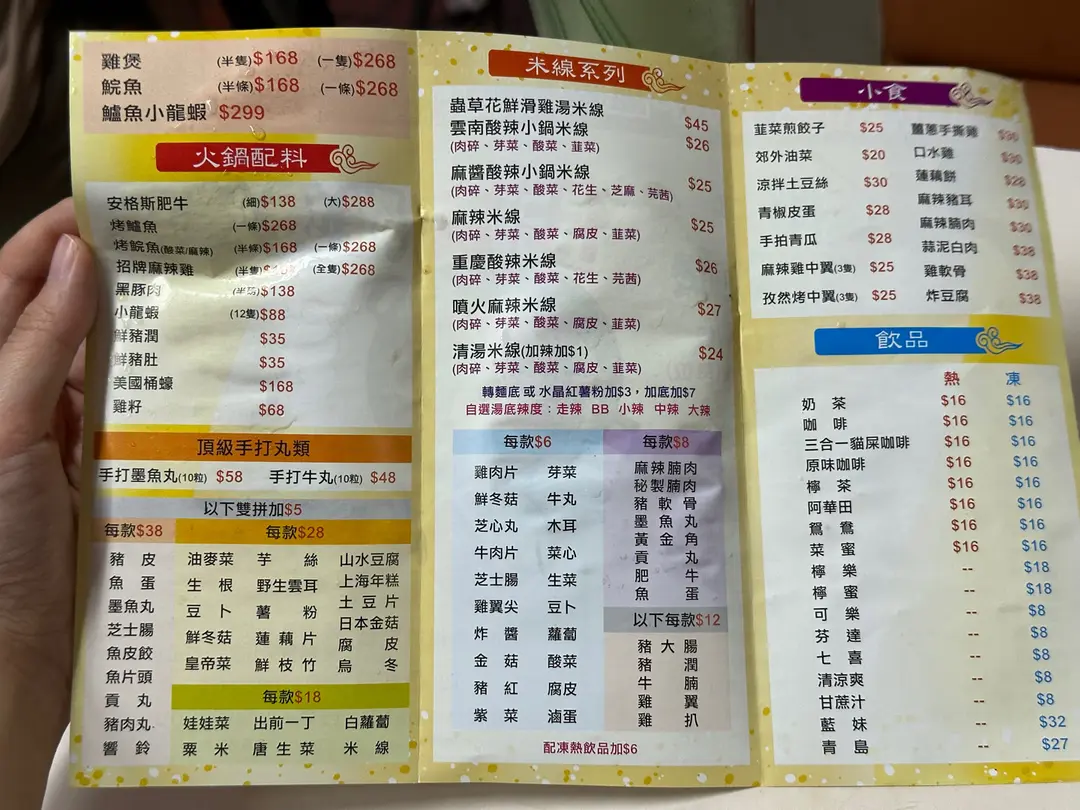 雞煲 (半隻)$168 (一隻)$268
鯇魚 (半條)$168 (一條)$268
鱸魚小龍蝦 $299
火鍋配料
安格斯肥牛 (細)$138 (大)$288
烤鱸魚 (一條)$268
烤鯇魚(酸菜/麻辣) (半條)$168 (一條)$268
招牌麻辣雞 (半隻) (全隻)$268
黑豚肉 $138
小龍蝦 (12隻)$88
鮮豬潤 $35
鮮豬肚 $35
美國桶蠔 $168
雞籽 $68
頂級手打丸類
手打墨魚丸(10粒) $58 手打牛丸(10粒) $48
以下雙拼加$5
每款$38
豬皮
魚蛋
墨魚丸
芝士腸
魚皮餃
魚片頭
貢丸
豬肉丸
響鈴
每款$28
油麥菜 芋絲 山水豆腐
生根 野生雲耳 上海年糕
豆卜 薯粉 土豆片
鮮冬菇 蓮藕片 日本金菇
皇帝菜 鮮枝竹 腐皮
烏冬
每款$18
娃娃菜 出前一丁 白蘿蔔
粟米 唐生菜 米線
米線系列
蟲草花鮮滑雞湯米線 $45
雲南酸辣小鍋米線 $26
(肉碎、芽菜、酸菜、韮菜)
麻醬酸辣小鍋米線 $25
(肉碎、芽菜、酸菜、花生、芝麻、芫茜)
麻辣米線 $25
(肉碎、芽菜、酸菜、腐皮、韮菜)
重慶酸辣米線 $26
(肉碎、芽菜、酸菜、花生、芫茜)
噴火麻辣米線 $27
(肉碎、芽菜、酸菜、腐皮、韮菜)
清湯米線(加辣加$1) $24
(肉碎、芽菜、酸菜、腐皮、韮菜)
轉麵底 或 水晶紅薯粉加$3，加底加$7
自選湯底辣度：走辣 BB 小辣 中辣 大辣
每款$6
雞肉片 芽菜
鮮冬菇 牛丸
芝心丸 木耳
牛肉片 菜心
芝士腸 生菜
雞翼尖 豆卜
炸醬 蘿蔔
金菇 酸菜
豬紅 腐皮
紫菜 滷蛋
每款$8
麻辣腩肉
秘製腩肉
豬軟骨
墨魚丸
黃金角
貢丸
肥牛
魚蛋
以下每款$12
豬大腸
豬潤
牛腩
雞翼
雞扒
配凍熱飲品加$6
小食
韮菜煎餃子 $25 薑蔥手撕雞 $30
郊外油菜 $20 口水雞 $30
涼拌土豆絲 $30 蓮藕餅 $28
青椒皮蛋 $28 麻辣豬耳 $30
手拍青瓜 $28 麻辣腩肉 $30
麻辣雞中翼(3隻) $25 蒜泥白肉 $38
孜然烤中翼(3隻) $25 雞軟骨 $38
炸豆腐 $38
飲品
熱 凍
奶茶 $16 $16
咖啡 $16 $16
三合一貓屎咖啡 $16 $16
原味咖啡 $16 $16
檸茶 $16 $16
阿華田 $16 $16
鴛鴦 $16 $16
菜蜜 $16 $16
檸樂 -- $18
檸蜜 -- $18
可樂 -- $8
芬達 -- $8
七喜 -- $8
清涼爽 -- $8
甘蔗汁 -- $8
藍妹 -- $32
青島 -- $27